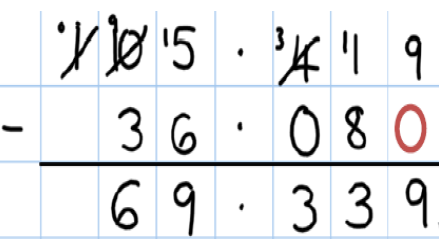 0 1 9 10 15 . 3 4 11 9
- 3 6 . 0 8 0
6 9 . 3 3 9